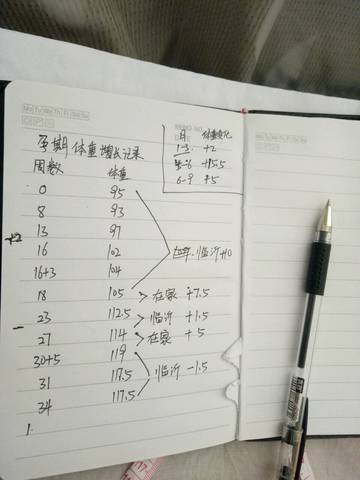 Mo Tu We Th Fr Sa Su
Mo Tu We Th Fr Sa Su
MEMO NO.
DATE
月 体重变化
1-3 +2
4-6 +15.5
6-9 +5
孕期体重增长记录
周数 体重
0 95
8 93
13 97
+2
16 102
16+3 104
临沂 +10
18 105
在家 +7.5
23 112.5
临沂 +1.5
27 114
在家 +5
30+5 119
31 117.5
临沂 -1.5
34 117.5
1.